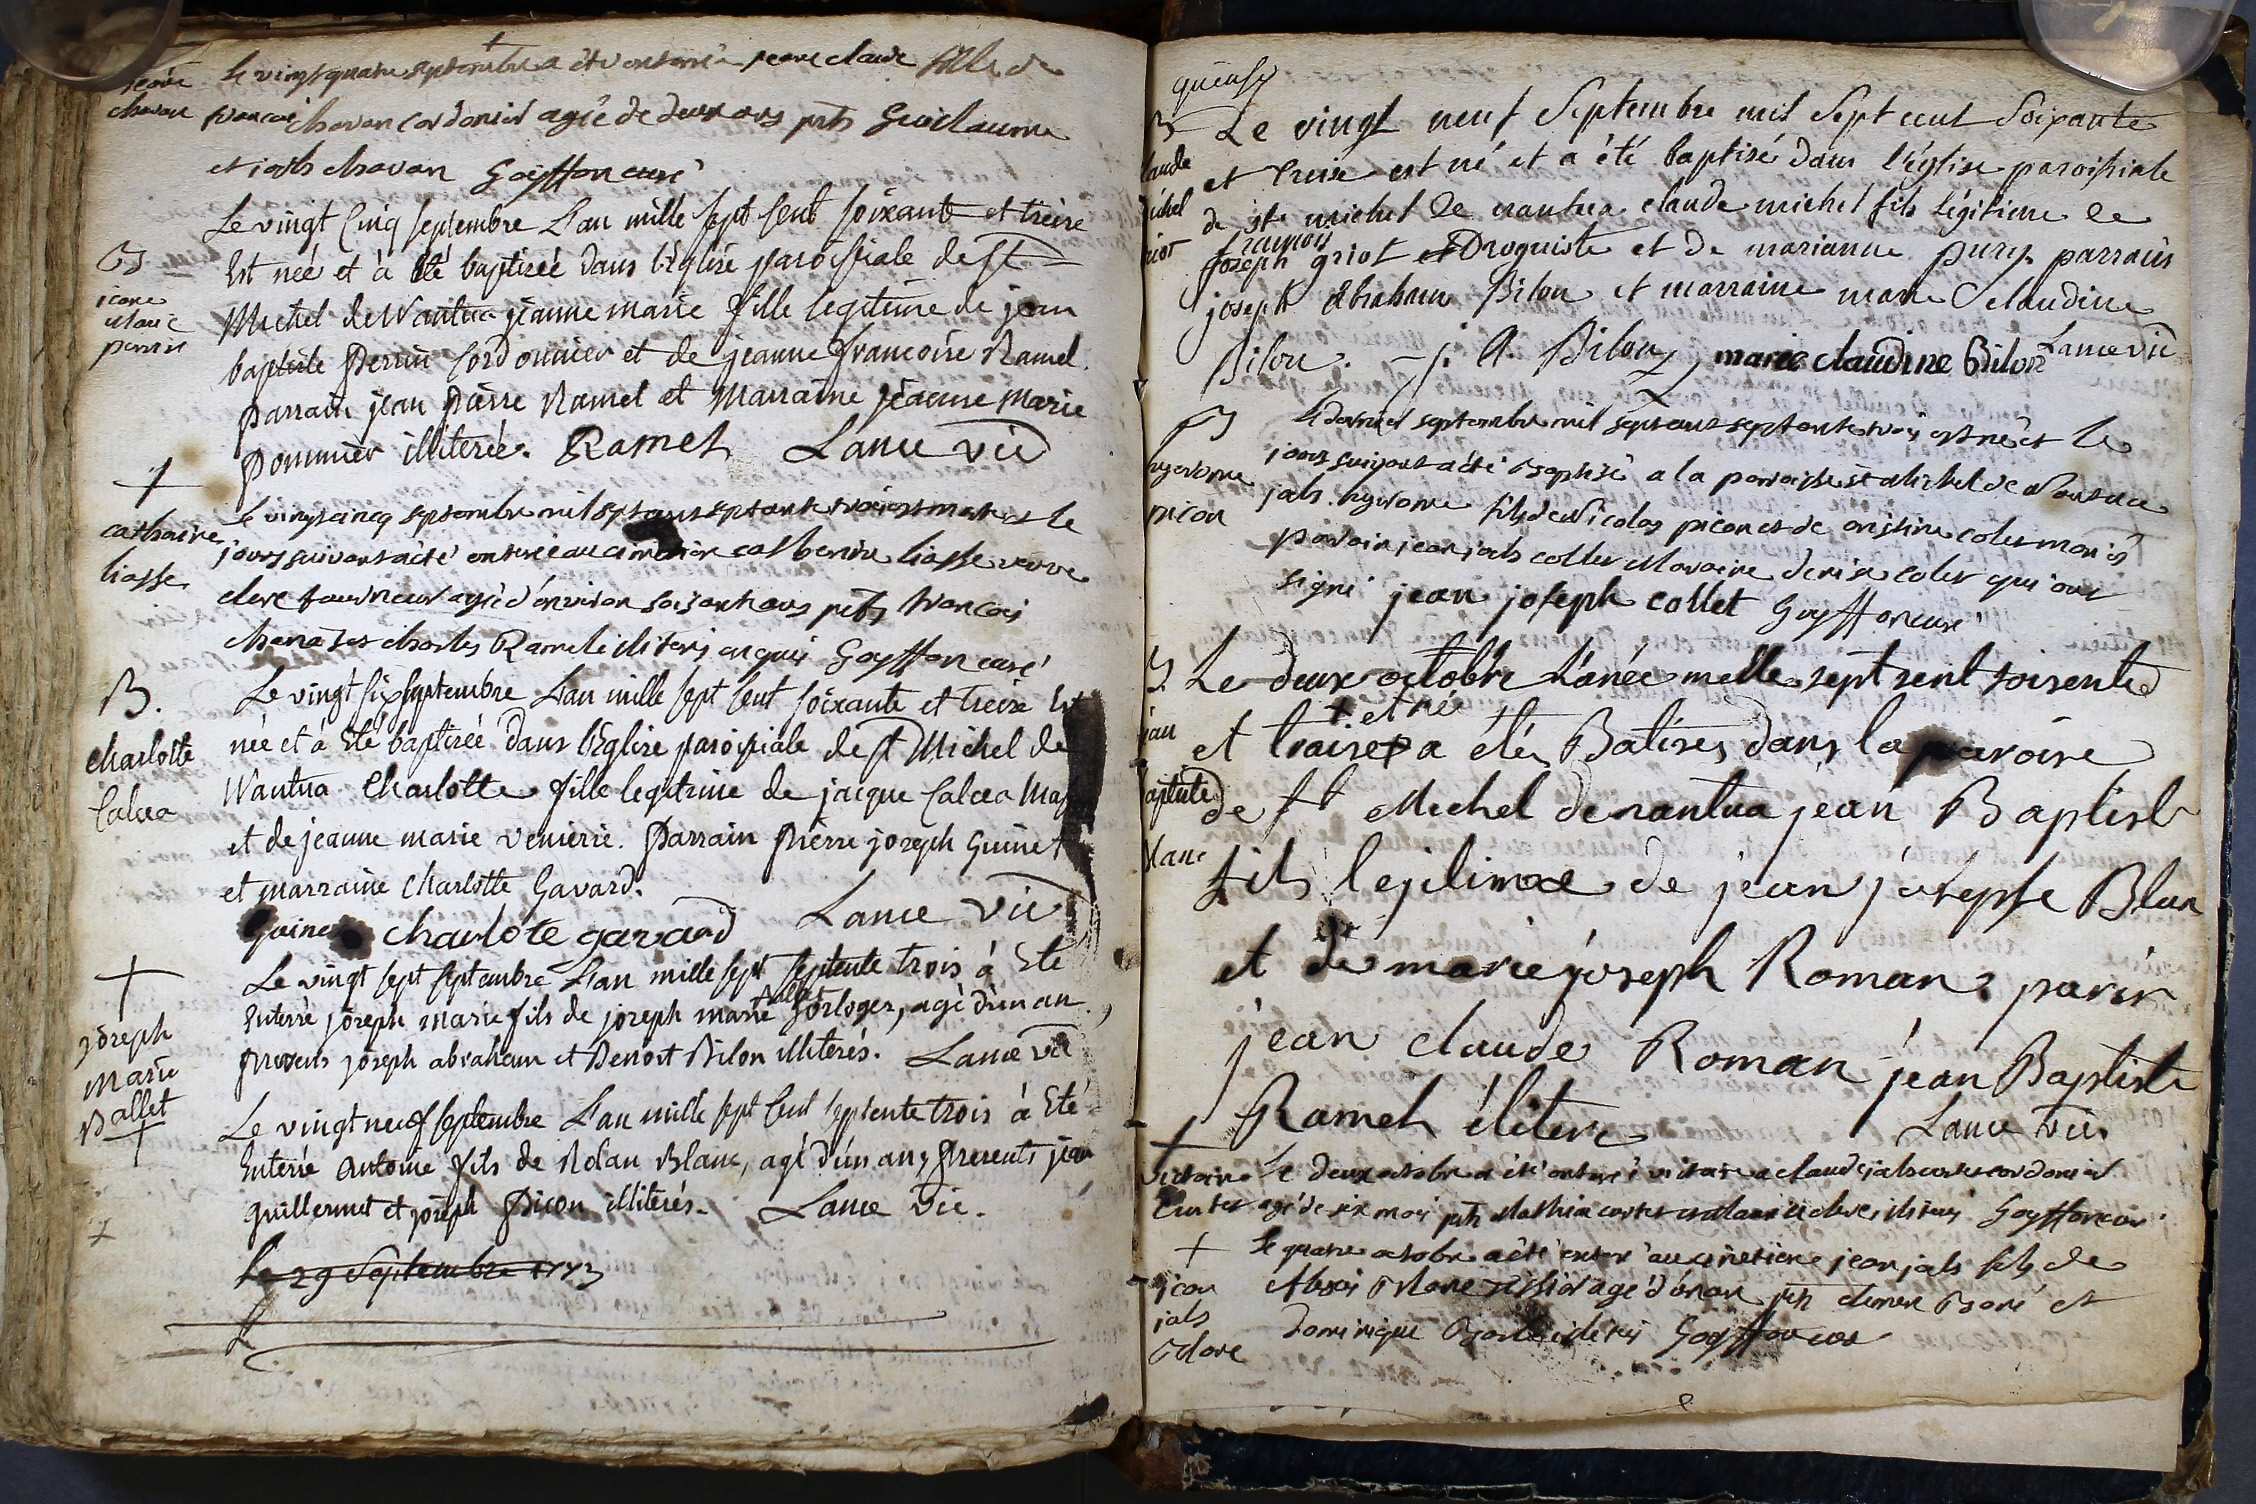 jeane
chavan
Le vingt quatre septembre a été enterré jeane claude fille de
francois chavan cordonier agée de deux ans pnts Guilaume
et josh chavan Goyffon curé
B
jeane
Marie
perrin
Le vingt Cinq septembre L'an mille sept sent soixante et treire
Est née et à été baptirée dans l'Eglire paroissiale de st
Michel de Nantua jeanne marie fille legitime de jean
baptiste Perrin Cordonnier et de jeanne francoire Ramel.
parrain jean pierre Ramel et Marraine jeanne Marie
Pommier illiterée. Ramel Lance vic
+
catherine
liasse
Le vingt cinq septembre mil sept cent septante trois est morte et le
jours suivant a été enterrée au cimetière catherine liasse veuve
clerc tourneur agée d'environ soisante ans pnts francois
chanal et charles Ramel iliterés enquis Goyffon curé
B.
Charlotte
Calcea
Le vingt six septembre L'an mille sept Cent soixante et treire Est
née et à Eté baptirée dans l'Eglire paroissiale de st Michel de
Nantua Charlotte fille legitime de jacque Calcea
et de jeanne marie venierie. Parrain Pierre joseph Guinet
et marraine Charlotte Gavard.
Guinet charlote gavard Lance vic
+
Joreph
Marie
Ballet
Le vingt sept septembre L'an mille sept septente trois à Eté
Enterré joreph marie fils de joreph marie ballet horloger, agé d'un an,
presens joreph abraham et Benoit Bilon illiterés. Lance vic
+
Le vingt neuf septembre L'an mille sept Cent septente trois à Eté
Enterré Antoine fils de Rolan Blanc, agé d'un an, prerents jean
guillermet et joreph Picon illiterés. Lance Vic.
+
Le 29 Septembre 1773
queusy
B
laude
michel
riot
Le vingt neuf Septembre mil Sept cent Soixante
et treize est né et a été baptisé dans l'église paroissiale
de st. michel de nantua claude michel fils légitime de
francois
joseph griot Droguiste et de marianne Pury. parrain
joseph Abraham Bilon et marraine marie Claudine
Bilon. - j. A. Bilon marie claudine Bilon Lance vic
B
hyerome
picon
Le dernier septembre mil sept cent septante trois est né et le
jours suivant a été baptisé a la paroisse st Michel de Nantua
josh hyerome fils de Nicolas picon et de cristine colet mariés
parain jean josh collet Maraine denise colet qui ont
signé jean joseph collet Goyffon curé
B
jan
baptiste
blanc
Le deux octobre L'anée melle sept sent soisente
+ et né
et traise a été Batisés dans la paroise
de st Michel de nantua jean Baptiste
fils legilimae de jean josepfe Blan
et de marie joseph Roman. parin
jean claude Roman jean Baptiste
Ramel élitere Lance Vic
+
victoire
Curtet
Le deux octobre a été enterré victoire a claude josh curtet cordonier
agé de six mois pnts Mathieu curtet et clerc iliterés Goyffon curé
+
jean
josh
Le quatre octobre a été enterré au cimetiere jean josh fils de
agé d'un an pnts et
Dominique iliterés Goyffon curé